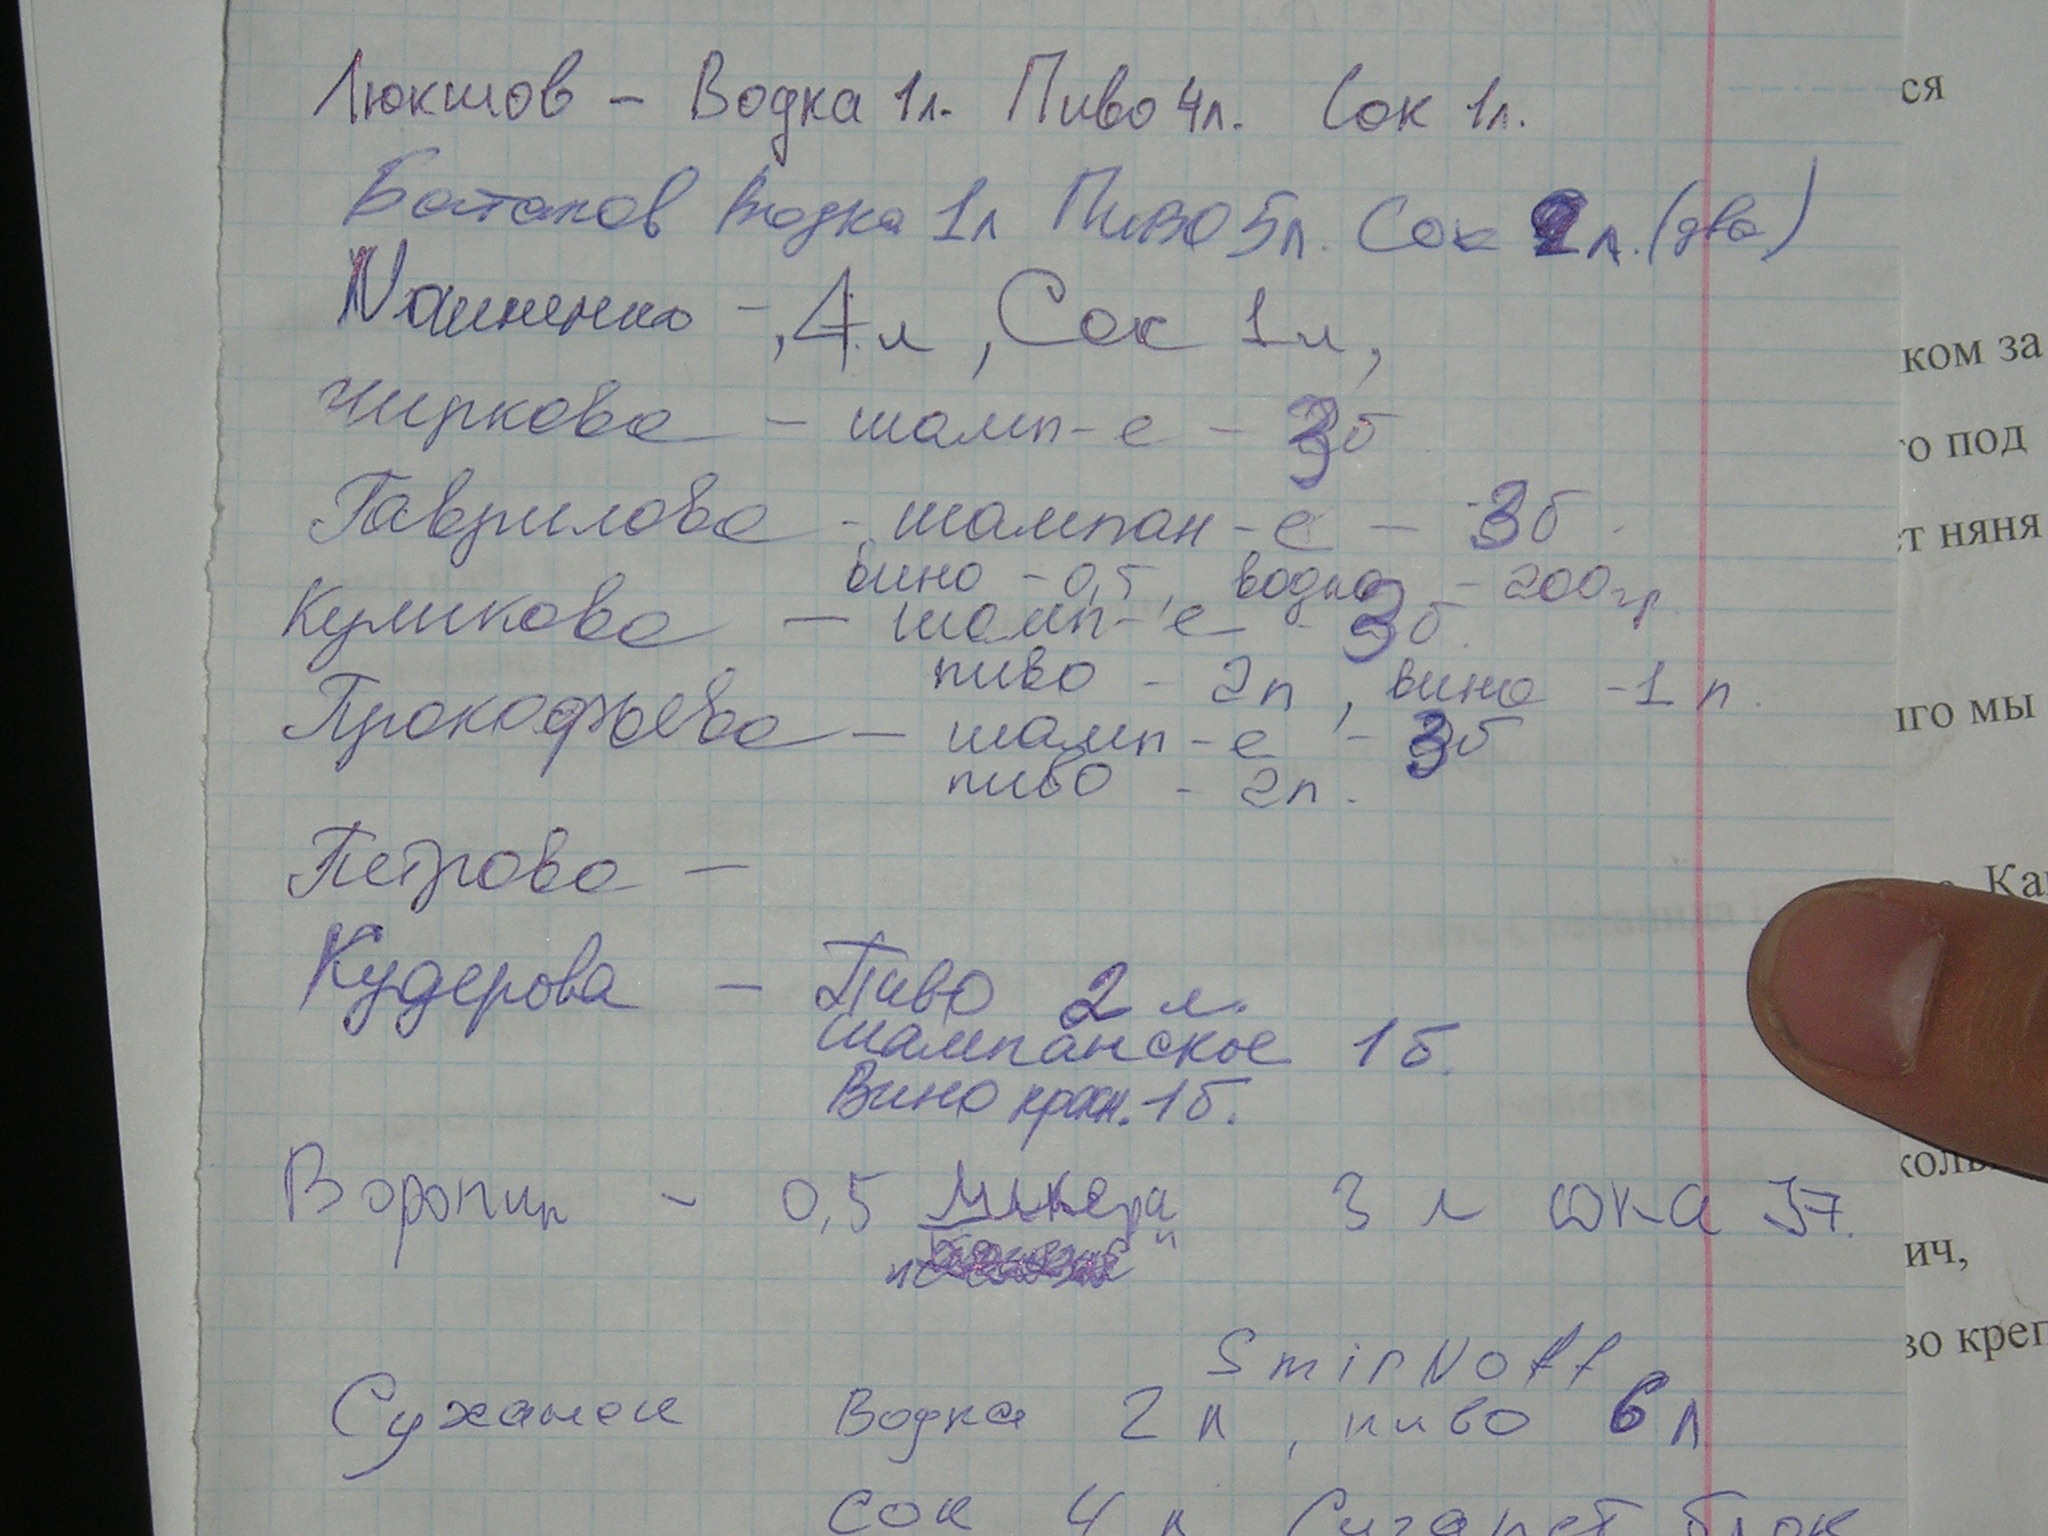 Люкшов – Водка 1л. Пиво 4л. Сок 1л.
Ботаков Водка 1л Пиво 5л. Сок 2л. (два)
–, 4л, Сок 1л,
Чиркова – шамп-е – 3б
Гаврилова – шампан-е – 3б.
вино – 0,5, водка – 200гр.
Куликова – шамп-е – 3б.
пиво – 2л, вино – 1л.
Прокофьева – шамп-е – 3б
пиво – 2л.
Петрова –
Кудерова – Пиво 2л.
Шампанское 1б.
Вино красн. 1б.
Воропин – 0,5 Ликера 3 л сока J7.
SmirNoff
Суханек Водка 2 л, пиво 6 л
сок 4 л Сигарет блок
ся
ком за
го под
ет няня
лго мы
Ка
коль
ич,
во креп